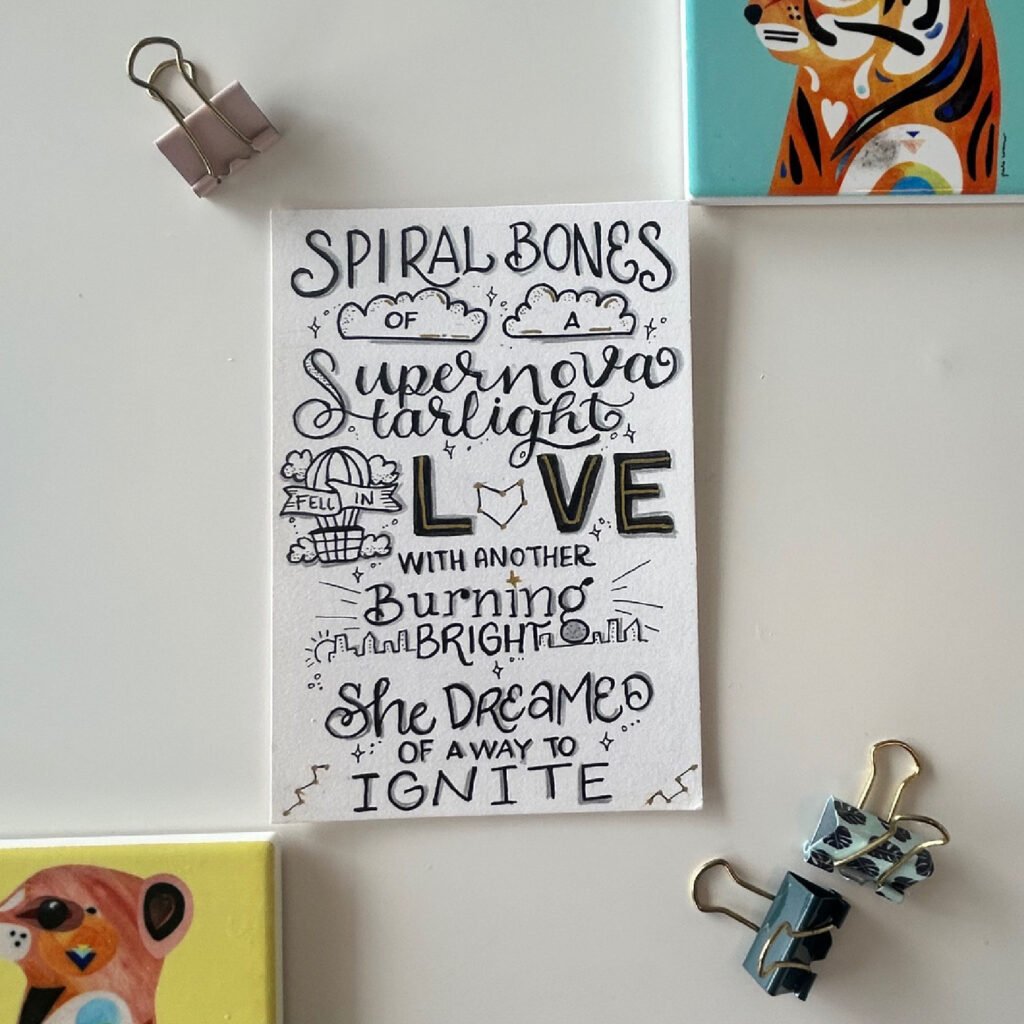 SPIRAL BONES
OF A
Supernova
Starlight
FELL IN LOVE
WITH ANOTHER
Burning
BRIGHT
She DREAMED
OF A WAY TO
IGNITE